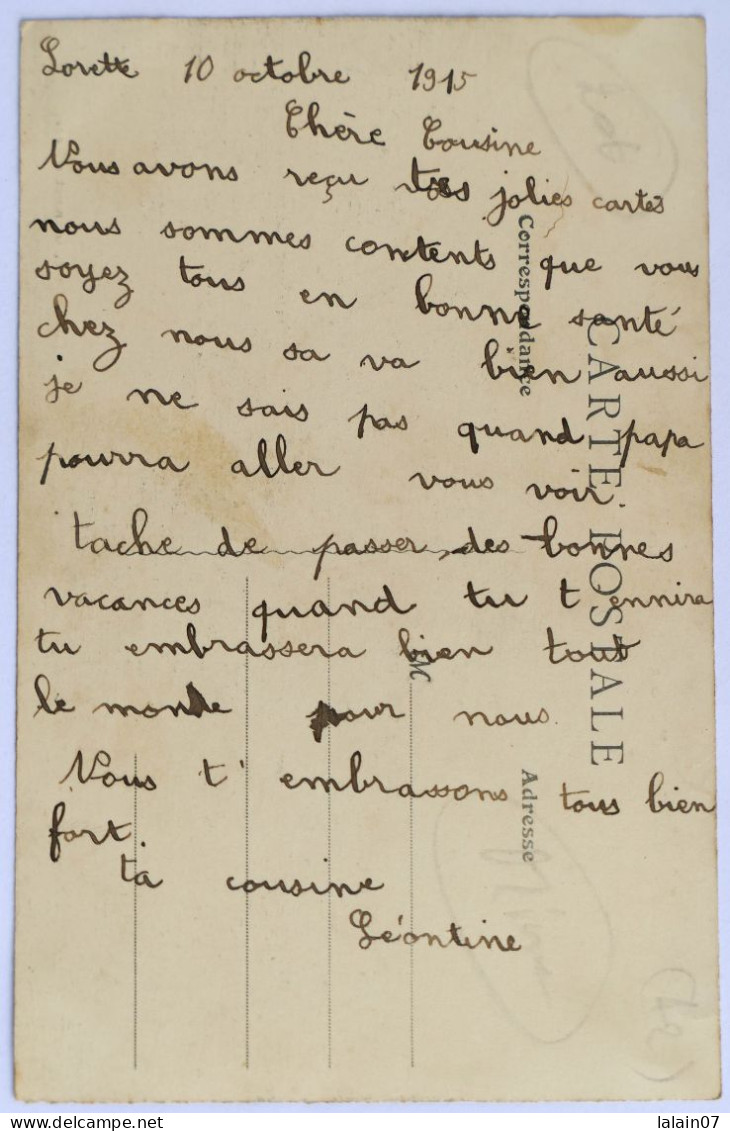 Lorette 10 octobre 1915
Chère Cousine
Nous avons reçu tes jolies cartes
nous sommes contents que vous
soyez tous en bonne santé
chez nous sa va bien aussi
je ne sais pas quand papa
pourra aller vous voir.
tache de passer des bonnes
vacances quand tu t ennira
tu embrassera bien tout
le monde pour nous
Nous t' embrassons tous bien
fort.
ta cousine
Léontine
CARTE POSTALE
Correspondance
M
Adresse
lalain07